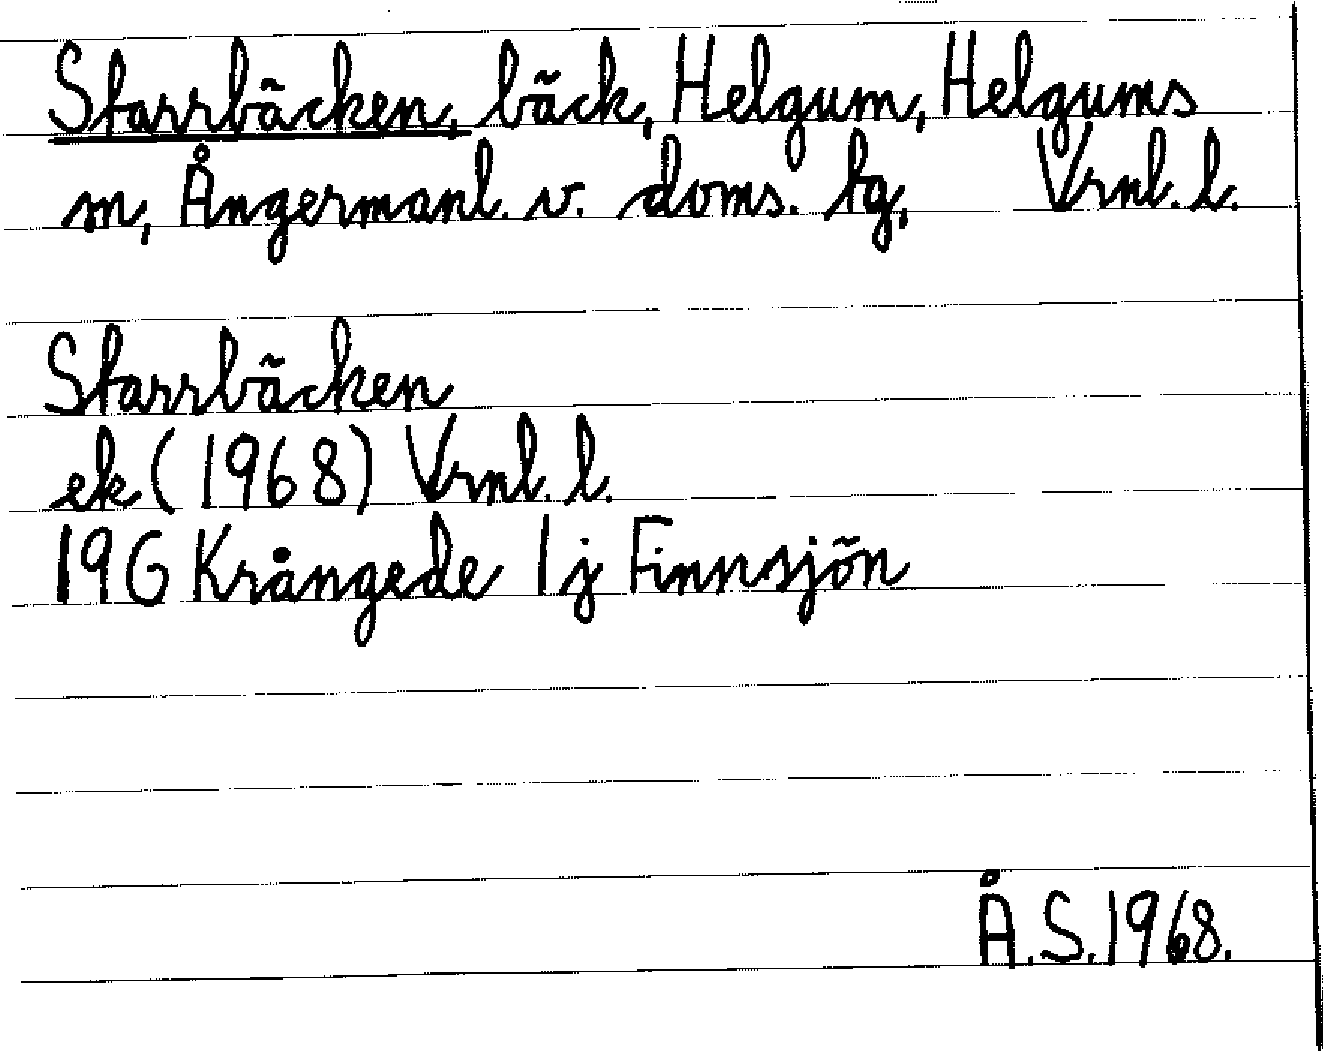 Starrbäcken, bäck, Helgum, Helgums
m, Ångermanl. v. doms. tg, Vrnl. l.
Starrbäcken
ek (1968) Vrnl. l.
19G Krångede 1j Finnsjön
Å.S. 1968.